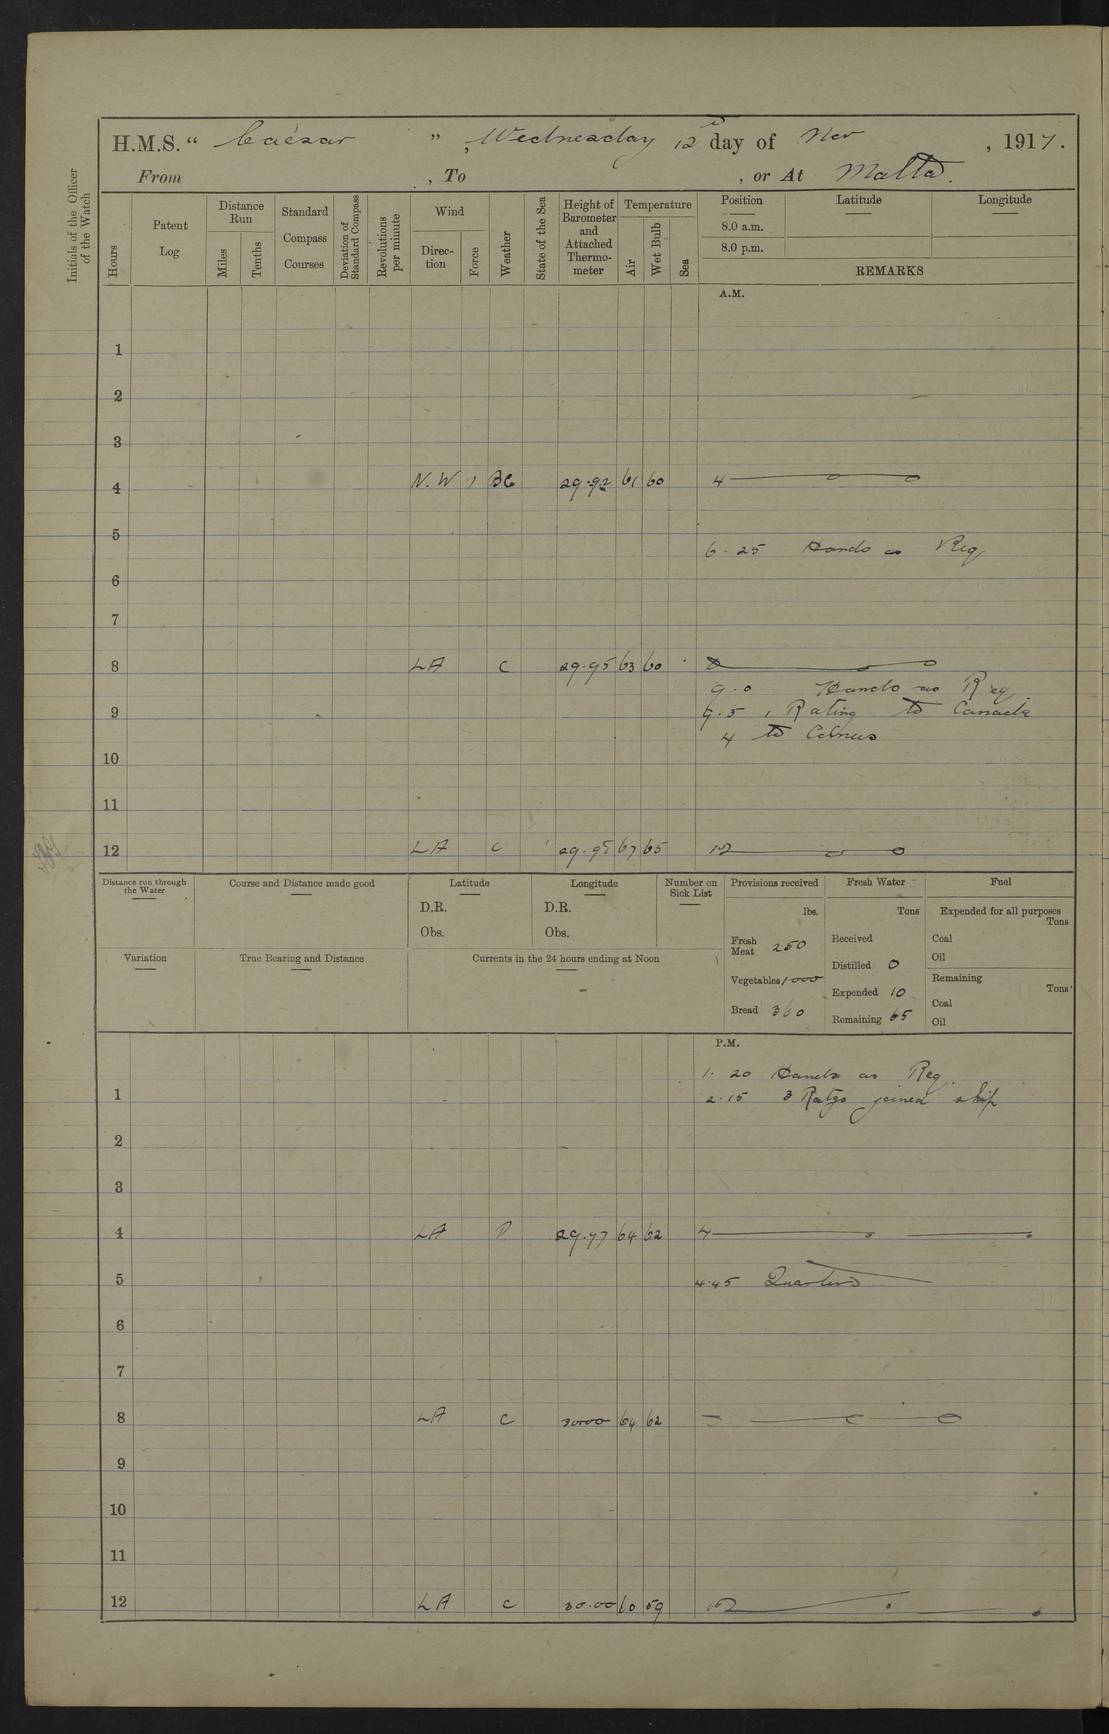 H.M.S. " Caesar ", Wednesday 12 day of Nov, 1917.
From , To , or At Malta.
Initials of the Officer of the Watch
Hours
Patent Log
Distance Run
Miles
Tenths
Standard Compass Courses
Deviation of Standard Compass
Revolutions per minute
Wind
Direction
Force
Weather
State of the Sea
Height of Barometer and Attached Thermometer
Temperature
Air
Wet Bulb
Sea
Position Latitude Longitude
8.0 a.m.
8.0 p.m.
REMARKS
A.M.
1
2
3
4 N.W 1 BC 29.92 61 60 4
5
6.25 Hands as Req
6
7
8 LA C 29.95 63 60 8
9.0 Hands as Req
9 9.5 1 Rating to Canada
4 to
10
11
12 LA C 29.98 67 65 12
Distance run through the Water
Course and Distance made good
Latitude
D.R.
Obs.
Longitude
D.R.
Obs.
Number on Sick List
Provisions received
lbs.
Fresh Meat 250
Vegetables 1000
Bread 360
Fresh Water
Tons
Received
Distilled 0
Expended 10
Remaining 65
Fuel
Expended for all purposes
Tons
Coal
Oil
Remaining
Tons
Coal
Oil
Variation
True Bearing and Distance
Currents in the 24 hours ending at Noon
P.M.
1.20 Hands as Req.
1 2.15 3 Ratgs joined ship
2
3
4 LA 29.97 64 62 4
4.45 Quarters
5
6
7
8 LA C 30.00 64 62
9
10
11
12 LA C 30.00 60 59 12